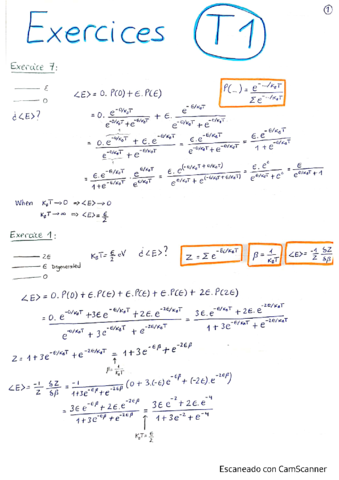 ①
Exercices T1
Exercice 7:
ε
0
¿<E>?
<E> = 0·P(0) + ε·P(ε)
P(...) = e^(-.../K_BT) / Σe^(-.../K_BT)
= 0· e^(-0/K_BT) / (e^(-0/K_BT) + e^(-ε/K_BT)) + ε· e^(-ε/K_BT) / (e^(-0/K_BT) + e^(-ε/K_BT))
= (0·e^(-0/K_BT) + ε·e^(-ε/K_BT)) / (e^(-0/K_BT) + e^(-ε/K_BT)) = ε·e^(-ε/K_BT) / (e^(-0/K_BT) + e^(-ε/K_BT)) = ε·e^(-ε/K_BT) / (1 + e^(-ε/K_BT))
When K_BT → 0 ⇒ <E> → 0
K_BT → ∞ ⇒ <E> = ε/2
Exercice 1:
2ε
ε Degenerated
0
K_BT = ε/2 eV ¿<E>?
Z = Σe^(-Ei/K_BT) β = 1/K_BT <E> = -1/Z δZ/δβ
<E> = 0·P(0) + ε·P(ε) + ε·P(ε) + ε·P(ε) + 2ε·P(2ε)
= (0·e^(-0/K_BT) + 3ε·e^(-ε/K_BT) + 2ε·e^(-2ε/K_BT)) / (e^(-0/K_BT) + 3e^(-ε/K_BT) + e^(-2ε/K_BT)) = (3ε·e^(-ε/K_BT) + 2ε·e^(-2ε/K_BT)) / (1 + 3e^(-ε/K_BT) + e^(-2ε/K_BT))
Z = 1 + 3e^(-ε/K_BT) + e^(-2ε/K_BT) = 1 + 3e^(-εβ) + e^(-2εβ)
β = 1/K_BT
<E> = -1/Z δZ/δβ = -1/(1 + 3e^(-εβ) + e^(-2εβ)) (0 + 3·(-ε)·e^(-εβ) + (-2ε)·e^(-2εβ))
= (3ε·e^(-εβ) + 2ε·e^(-2εβ)) / (1 + 3e^(-εβ) + e^(-2εβ)) = (3ε·e^(-2) + 2ε·e^(-4)) / (1 + 3e^(-2) + e^(-4))
K_BT = ε/2
Escaneado con CamScanner